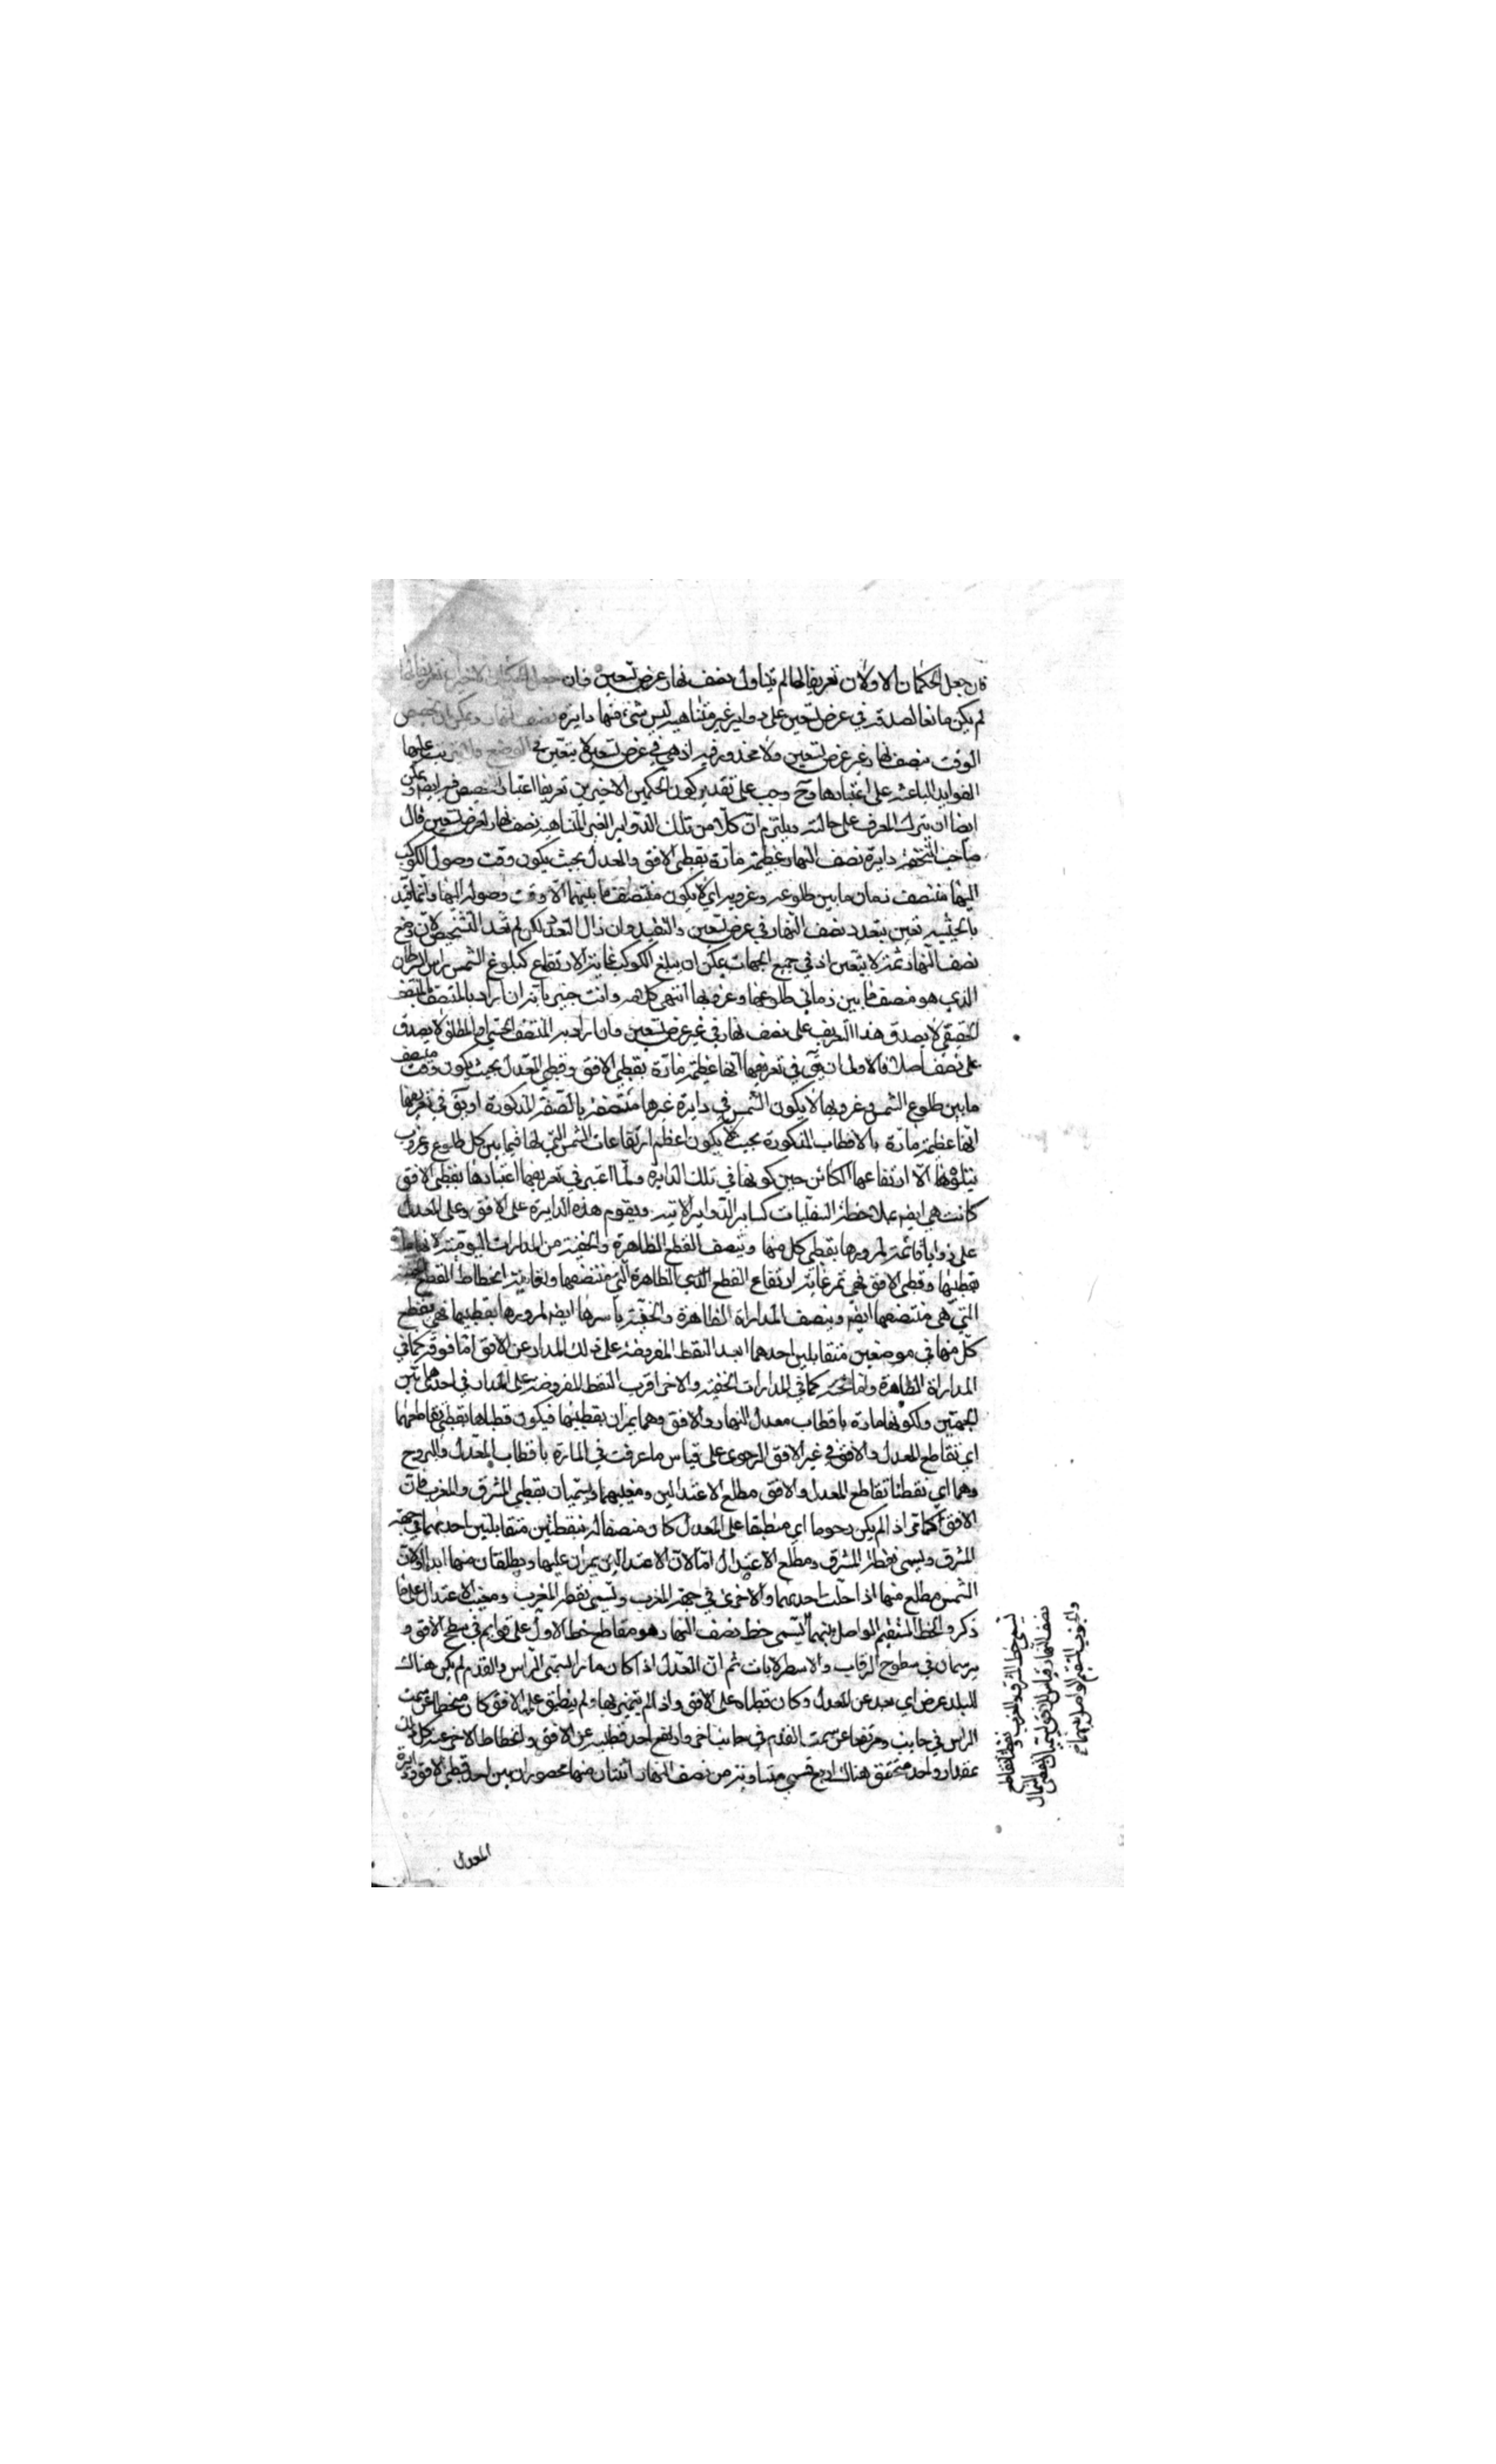 فان جعل الحكمان الاولان تعريفا لها لم يتناول نصف نهار عرض تسعين وان جعل الحكمان الاخيران تعريفا لها
لم يكن مانعا لصدقه في عرض تسعين على دواير غير متناهية ليس شيء منها دايرة نصف النهار ويمكن ان يخصص
الوقت بنصف نهار غير عرض تسعين ولا محذور فيه اذ هي في عرض تسعين لا يتعين في الوضع ولا يترتب عليها
الفوايد الباعثة على اعتبارها وح وجب على تقدير كون الحكمين الاخيرين تعريفا اعتبار التخصيص فيه ايضا ويمكن
ايضا ان يترك المعرف على حالته ويلتزم ان كلا من تلك الدواير الغير المتناهية نصف نهار لعرض تسعين قال
صاحب التحفة دايرة نصف النهار عظيمة مارة بقطبي الافق والمعدل بحيث يكون وقت وصول الكوكب
اليها منتصف زمان ما بين طلوعه وغروبه اي لا يكون منتصف ما بينهما الا وقت وصوله اليها وانما قيد
بالحيثية تعين بتعدد نصف النهار في عرض تسعين والتقييد وان زال التعدد لكن لم تفد التشخيص لان وضع
نصف النهار ثمة لا يتعين اذ في جميع الجهات يمكن ان يبلغ الكوكب غاية الارتفاع كبلوغ الشمس راس السرطان
الذي هو منصف ما بين زماني طلوعها وغروبها انتهى كلامه وانت خبير بانه ان اراد بالمنتصف المنتصف
الحقيقي لا يصدق هذا التعريف على نصف نهار في غير عرض تسعين وان اراد به المنتصف الحسي او المطلق لا يصدق
على نصف اصلا فالاولى ان يق في تعريفها انها عظيمة مارة بقطبي الافق وقطبي المعدل بحيث يكون وقت منتصف
ما بين طلوع الشمس وغروبها لا يكون الشمس في دايرة غيرها متصفة بالصفة المذكورة او يق في تعريفها
انها عظيمة مارة بالاقطاب المذكورة بحيث لا يكون اعظم ارتفاعات الشمس التي لها فيما بين كل طلوع وغروب
يتلوها الا ارتفاعها الكائن حين كونها في تلك الدايرة ولما اعتبر في تعريفها اعتبارها بقطبي الافق
كانت هي ايضا بملاحظة السفليات كساير الدواير الاتية ويقوم هذه الدايرة على الافق وعلى المعدل
على زوايا قائمة لمرورها بقطبي كل منها وينصف القطع الظاهرة والخفية من المدارات اليومية
بقطبيها وقطبي الافق فهي تمر غاية ارتفاع القطع الظاهرة التي منتصفها ولغاية انحطاط القطع الخفية
التي هي منتصفها ايضا وينصف المدارات الظاهرة والخفية باسرها ايضا لمرورها بقطبيها فهي تقطع
كل منها في موضعين متقابلين احدهما ابعد النقط المفروضة على ذلك المدار عن الافق اما فوقه كما في
المدارات الظاهرة واما تحته كما في المدارات الخفية والاخر اقرب النقط المفروضة على المدار في احدى هاتين
الجهتين ولكونها مارة باقطاب معدل النهار والافق وهما يمران بقطبيها فيكون قطباها نقطتي تقاطعهما
اي تقاطع المعدل والافق في غير الافق الرحوي على قياس ما عرفت في المارة باقطاب المعدل والبروج
وهما اي نقطتا تقاطع المعدل والافق مطلع الاعتدالين ومغيبهما ويسميان نقطتي المشرق والمغرب فان
الافق كما مر اذا لم يكن رحويا اي منطبقا على المعدل كان منصفا له بنقطتين متقابلتين احديهما في جهة
المشرق ويسمى نقطة المشرق ومطلع الاعتدال اما لان الاعتدالين يمران عليها ويطلقان منها ابدا او لان
الشمس مطلع منها اذا حلت احدهما والاخرى في جهة المغرب وتسمى نقطة المغرب ومغيب الاعتدال على ما
ذكر والخط المستقيم الواصل بينهما يسمى خط نصف النهار وهو مقاطع خط الاول على قوايم في سطح الافق و
يرسمان في سطوح الرخامات والاسطرلابات ثم ان المعدل اذا كان مارا بسمتي الراس والقدم لم يكن هناك
للبلد عرض اي بعد عن المعدل وكان قطباه على الافق واذا لم يمر بها ولم ينطبق على الافق كان منحطا عن سمت
الراس في جانب ومرتفعا عن سمت القدم في جانب اخر وارتفع احد قطبيه عن الافق وانحطاط الاخر عنه كل ذلك
بمقدار واحد فتحقق هناك اربع قسي متساوية من نصف النهار اثنتان منها محصورتان بين احد قطبي الافق ودايرة
المعدل
يسمى خط المشرق والمغرب ونقطتا تقاطع
نصف النهار والافق يسميان نقطتي الشمال
والجنوب والخط المستقيم الواصل بينهما